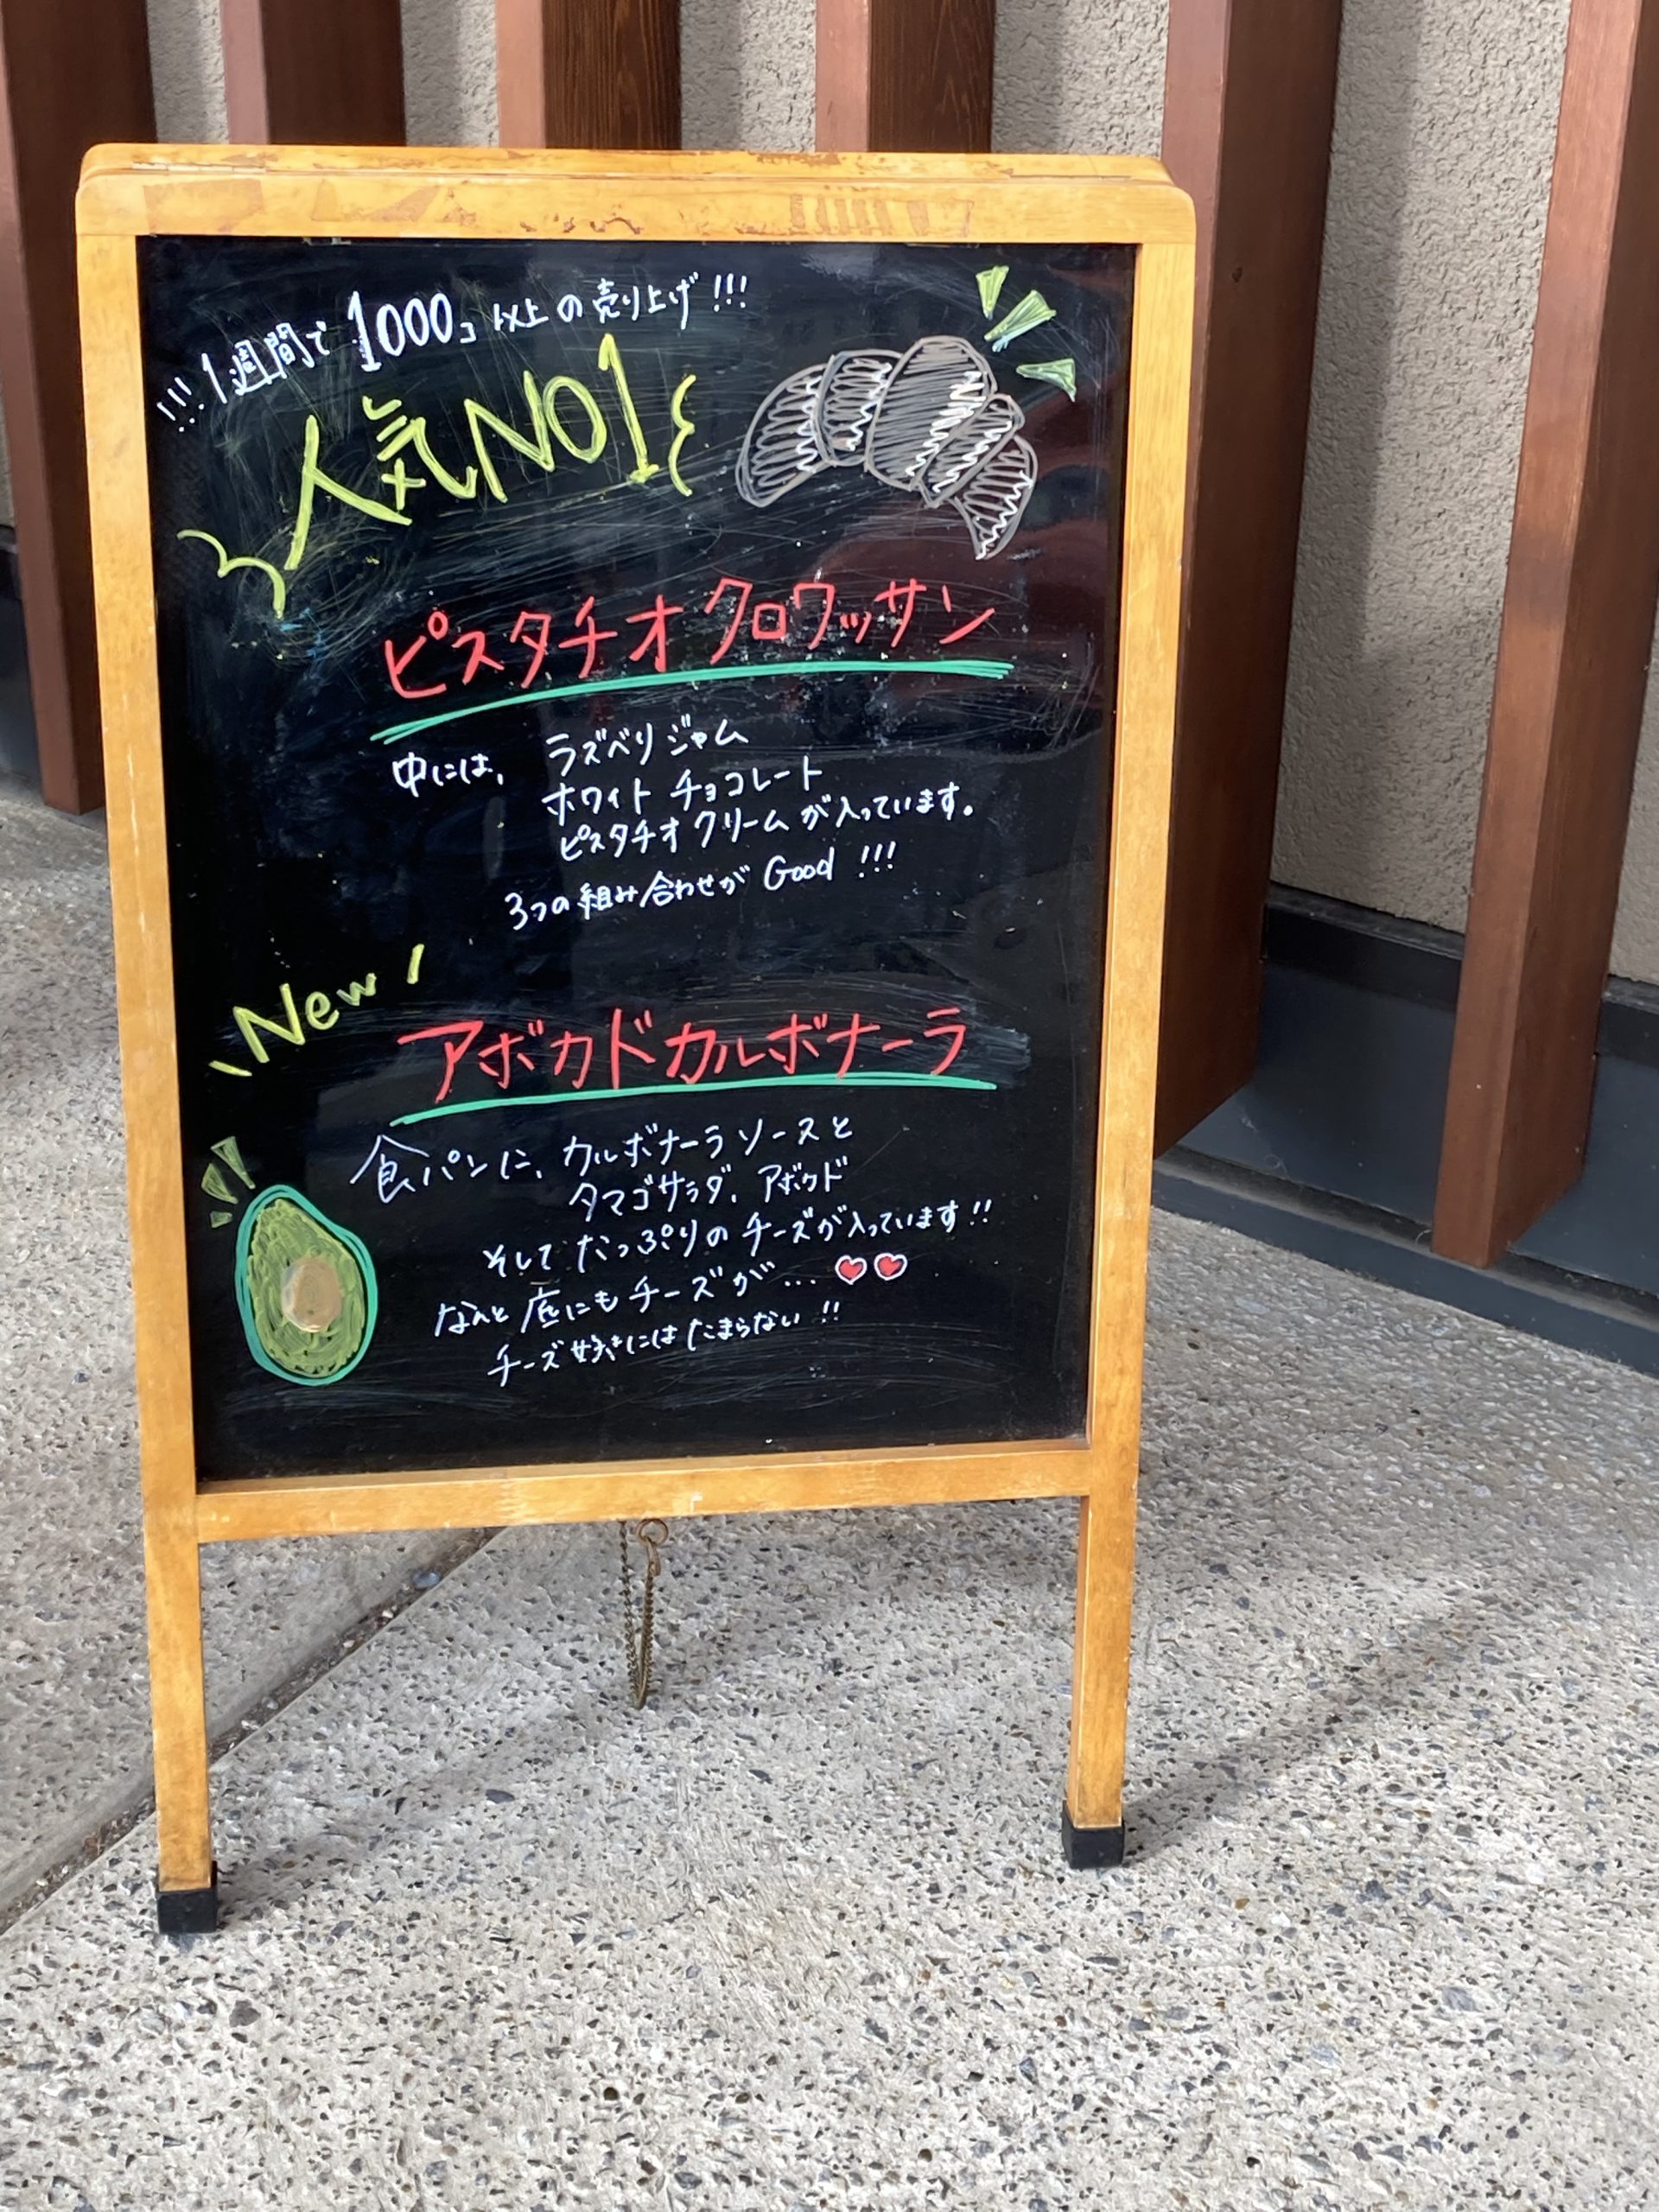 !!!1週間で1000コ以上の売り上げ!!!
人気NO1
ピスタチオクロワッサン
中には、ラズベリジャム
ホワイトチョコレート
ピスタチオクリームが入っています。
3つの組み合わせがGood!!!
New
アボカドカルボナーラ
食パンに、カルボナーラソースと
タマゴサラダ、アボカド
そしてたっぷりのチーズが入っています!!
なんと底にもチーズが...
チーズ好きにはたまらない!!